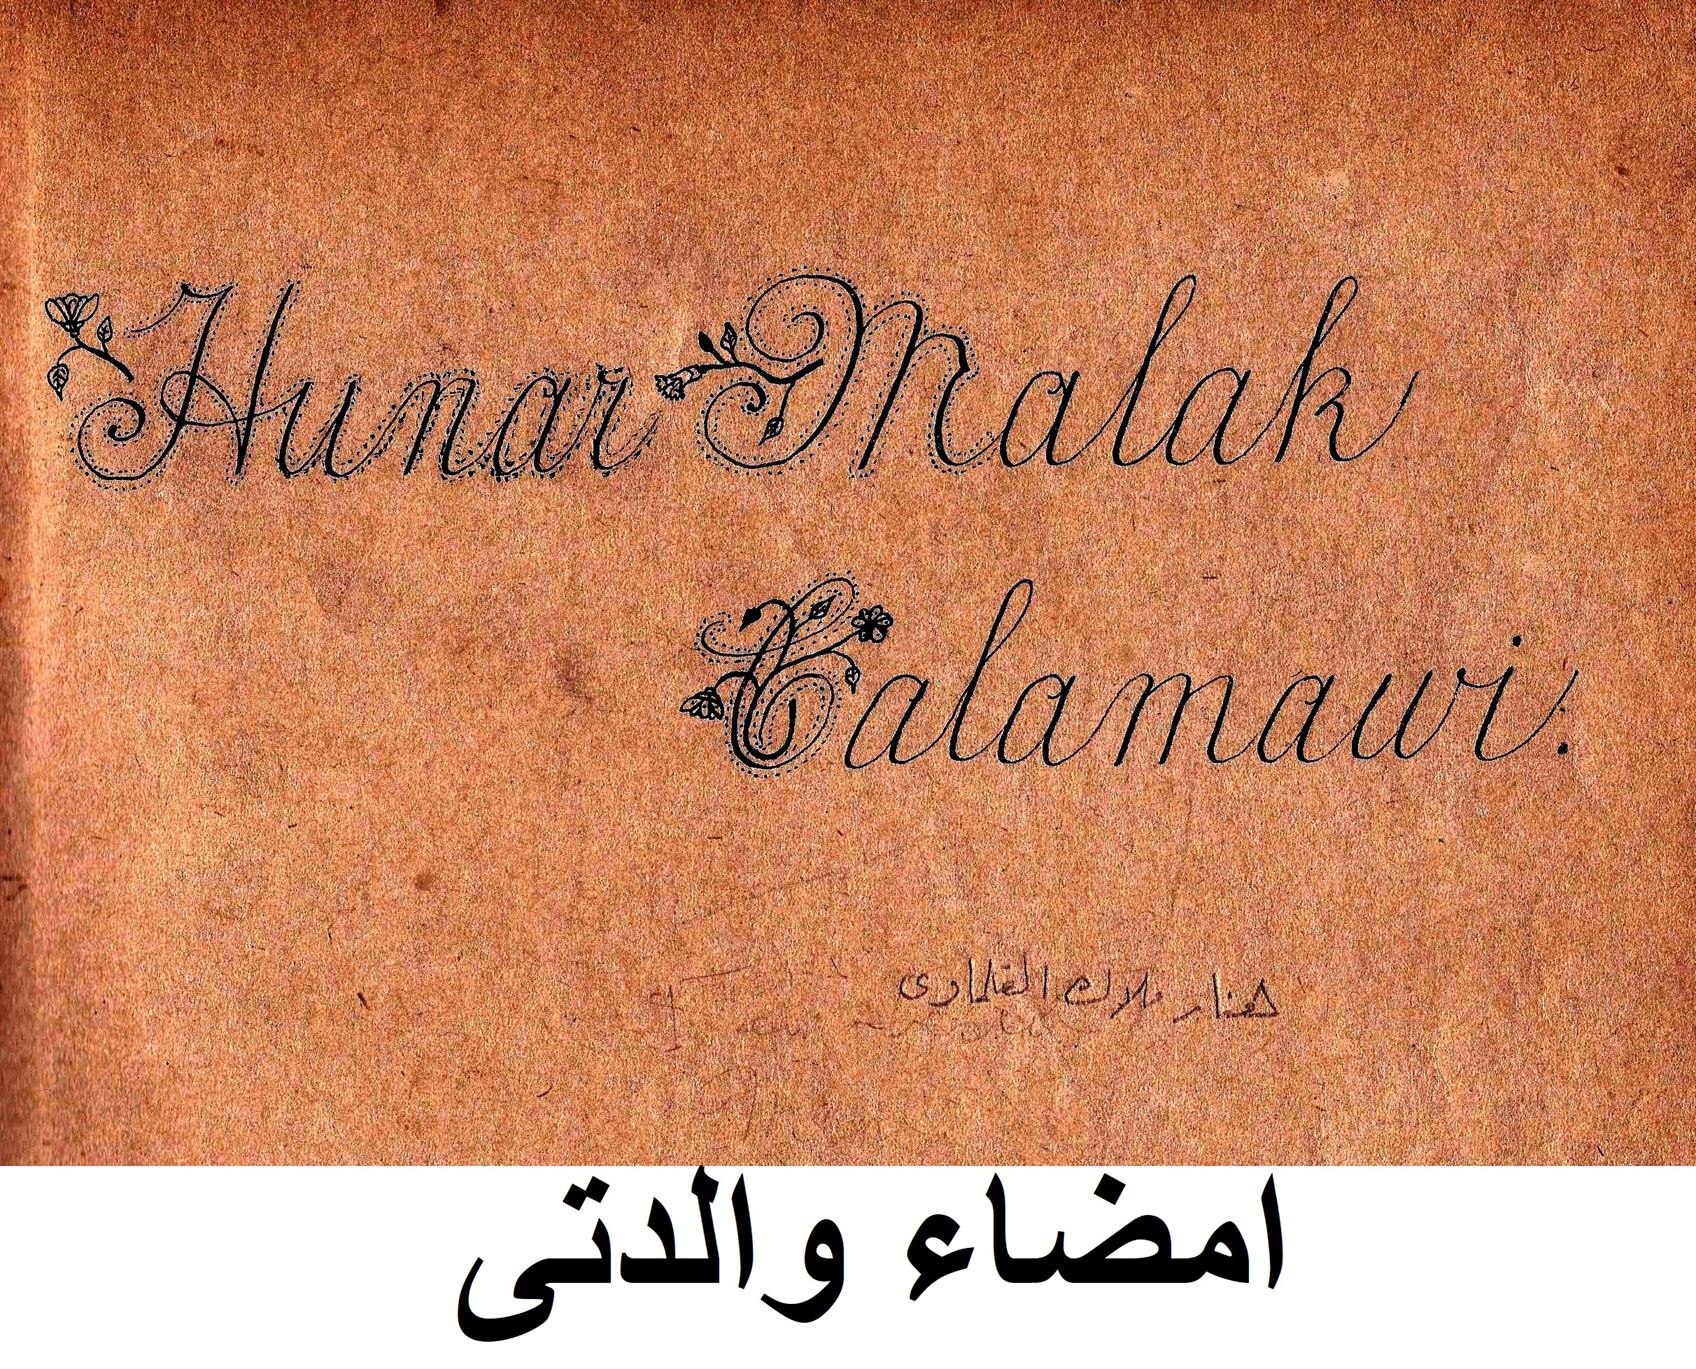 Hunar Malak
Calamawi.
هنار ملاك القلماوى
امضاء والدتى